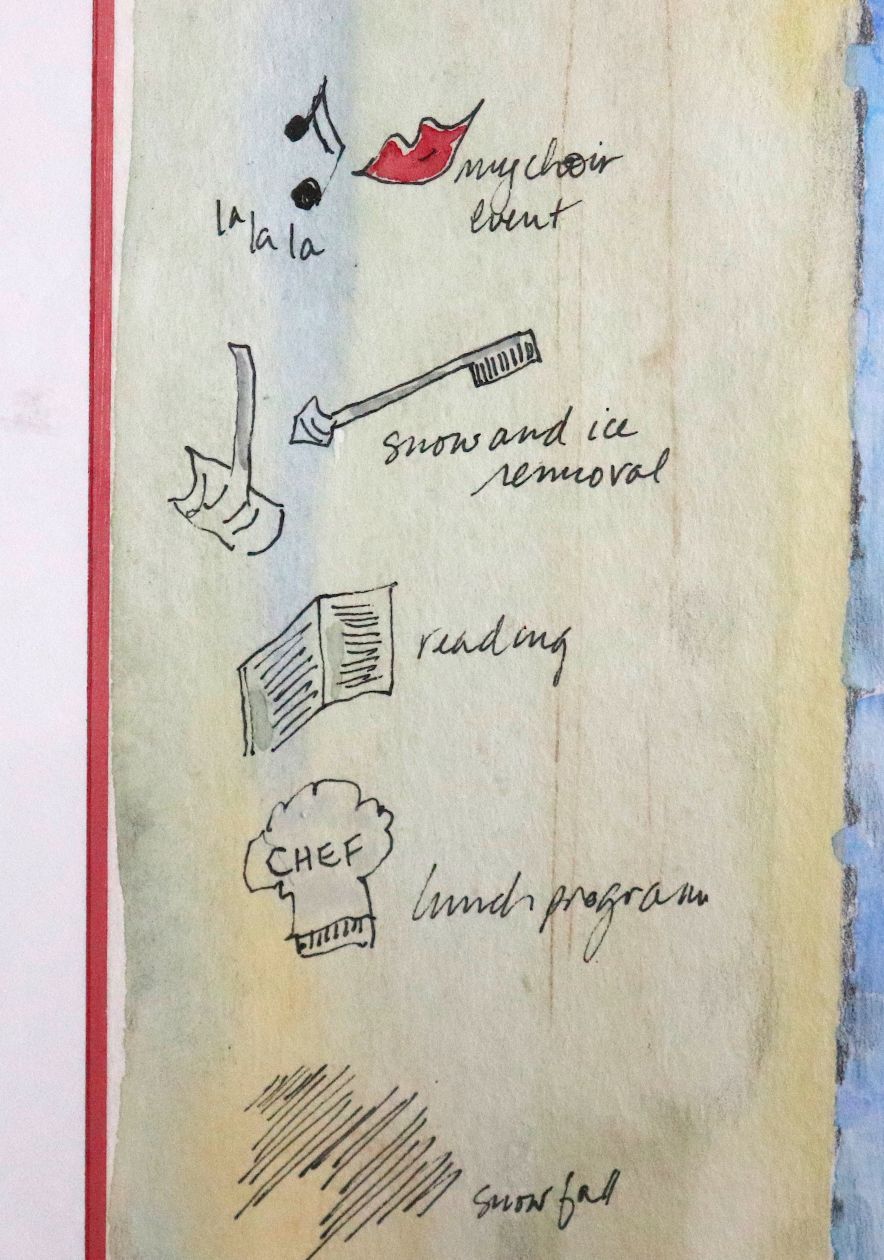 la la la
my choir
event
snow and ice
removal
reading
CHEF
lunch program
snowfall